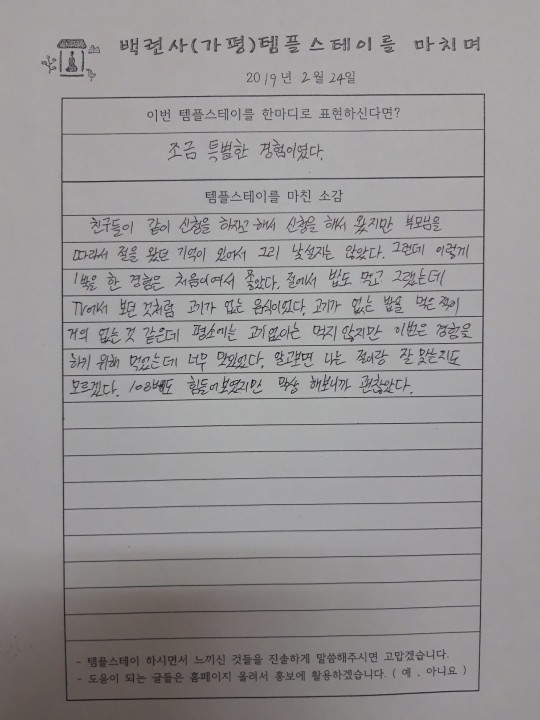 백련사(가평)템플스테이를 마치며
2019년 2월 24일
이번 템플스테이를 한마디로 표현하신다면?
조금 특별한 경험이었다.
템플스테이를 마친 소감
친구들이 같이 신청을 하자고 해서 신청을 해서 왔지만 부모님을
따라서 절을 왔던 기억이 있어서 그리 낯설지는 않았다. 그런데 이렇게
1박을 한 경험은 처음이여서 좋았다. 절에서 밥도 먹고 그랬는데
TV에서 보던 것처럼 고기가 없는 음식이었다. 고기가 없는 밥을 먹은 적이
거의 없는 것 같은데 평소에는 고기 없이는 먹지 않지만 이번은 경험을
하기 위해 먹었는데 너무 맛있었다. 알고보면 나는 절이랑 잘 맞는지도
모르겠다. 108배도 힘들어보였지만 막상 해보니까 괜찮았다.
- 템플스테이 하시면서 느끼신 것들을 진솔하게 말씀해주시면 고맙겠습니다.
- 도움이 되는 글들은 홈페이지 올려서 홍보에 활용하겠습니다. ( 예 , 아니요 )